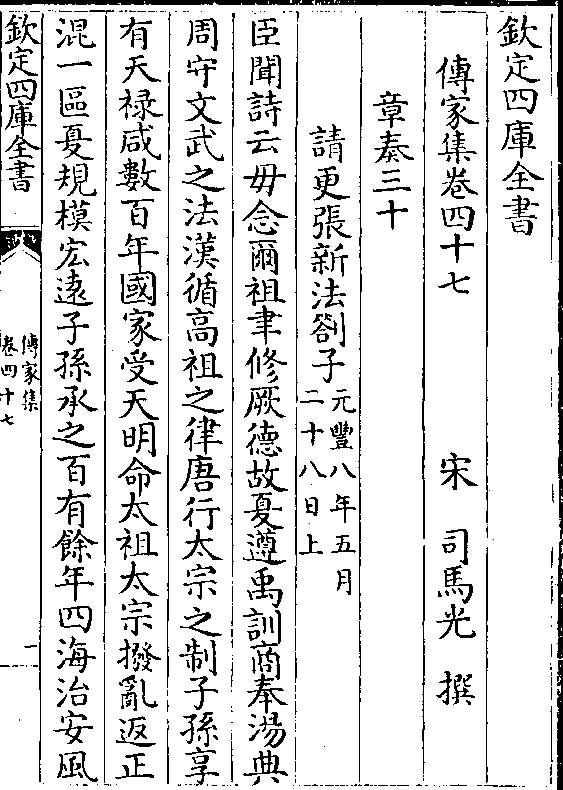 欽定四庫全書
傳家集卷四十七　宋　司馬光　撰
章奏三十
請更張新法劄子元豐八年五月
二十八日上
臣聞詩云毋念爾祖聿修厥德故夏遵禹訓商奉湯典
周守文武之法漢循高祖之律唐行太宗之制子孫享
有天禄咸數百年國家受天明命太祖太宗撥亂返正
混一區夏規模宏遠子孫承之百有餘年四海治安風
欽定四庫全書
傳家集
卷四十七
一